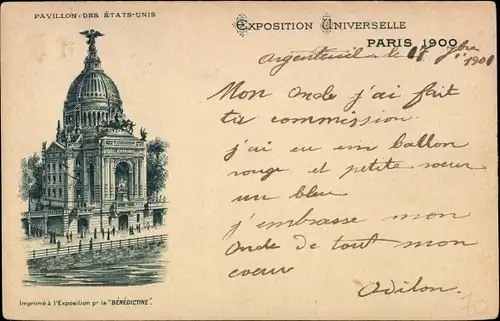 PAVILLON·DES ÉTATS-UNIS
EXPOSITION UNIVERSELLE
PARIS 1900
Argenteuil le 17 9bre 1900
Mon Oncle j'ai fait
ta commission.
j'ai eu un ballon
rouge et petite sœur
un bleu
j'embrasse mon
Oncle de tout mon
coeur
Odilon.
Imprimé à l'Exposition pr la "BÉNÉDICTINE".